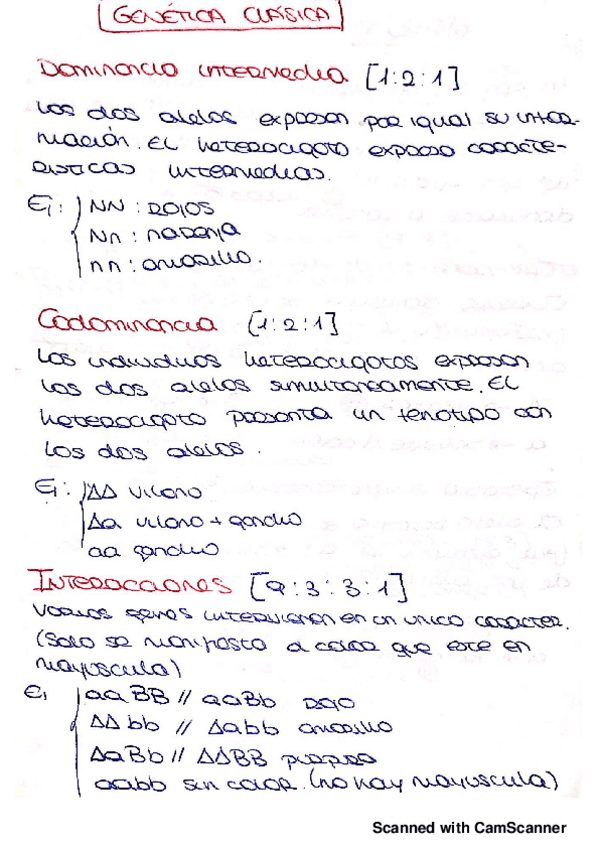 GENÉTICA CLÁSICA
Dominancia intermedia [1:2:1]
Los dos alelos expresan por igual su infor-
mación. El heterocigoto expresa caracte-
rísticas intermedias.
Ej: NN : rojos
Nn : naranja
nn : amarillo.
Codominancia [1:2:1]
Los individuos heterocigotos expresan
los dos alelos simultáneamente. El
heterocigoto presenta un fenotipo con
los dos alelos.
Ej: AA villano
Aa villano + gancho
aa gancho
INTERACCIONES [9:3:3:1]
Varios genes intervienen en un único carácter.
(Solo se manifiesta el color que este en
mayuscula)
Ej aaBB // aaBb rojo
AAbb // Aabb amarillo
AaBb // AABB purpura
aabb sin color. (no hay mayuscula)
Scanned with CamScanner